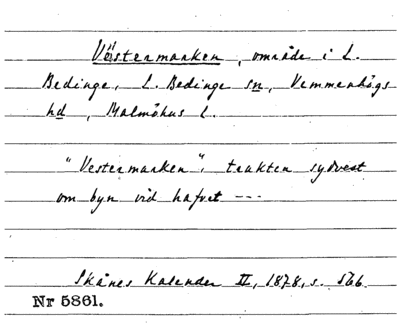 Västermarken, område i L.
Bedinge, L. Bedinge sn, Vemmenhögs
hd, Malmöhus l.
"Vestermarken", trakten sydvest
om byn vid hafvet ---
Skånes Kalender II, 1878, s. 566
Nr 5861.